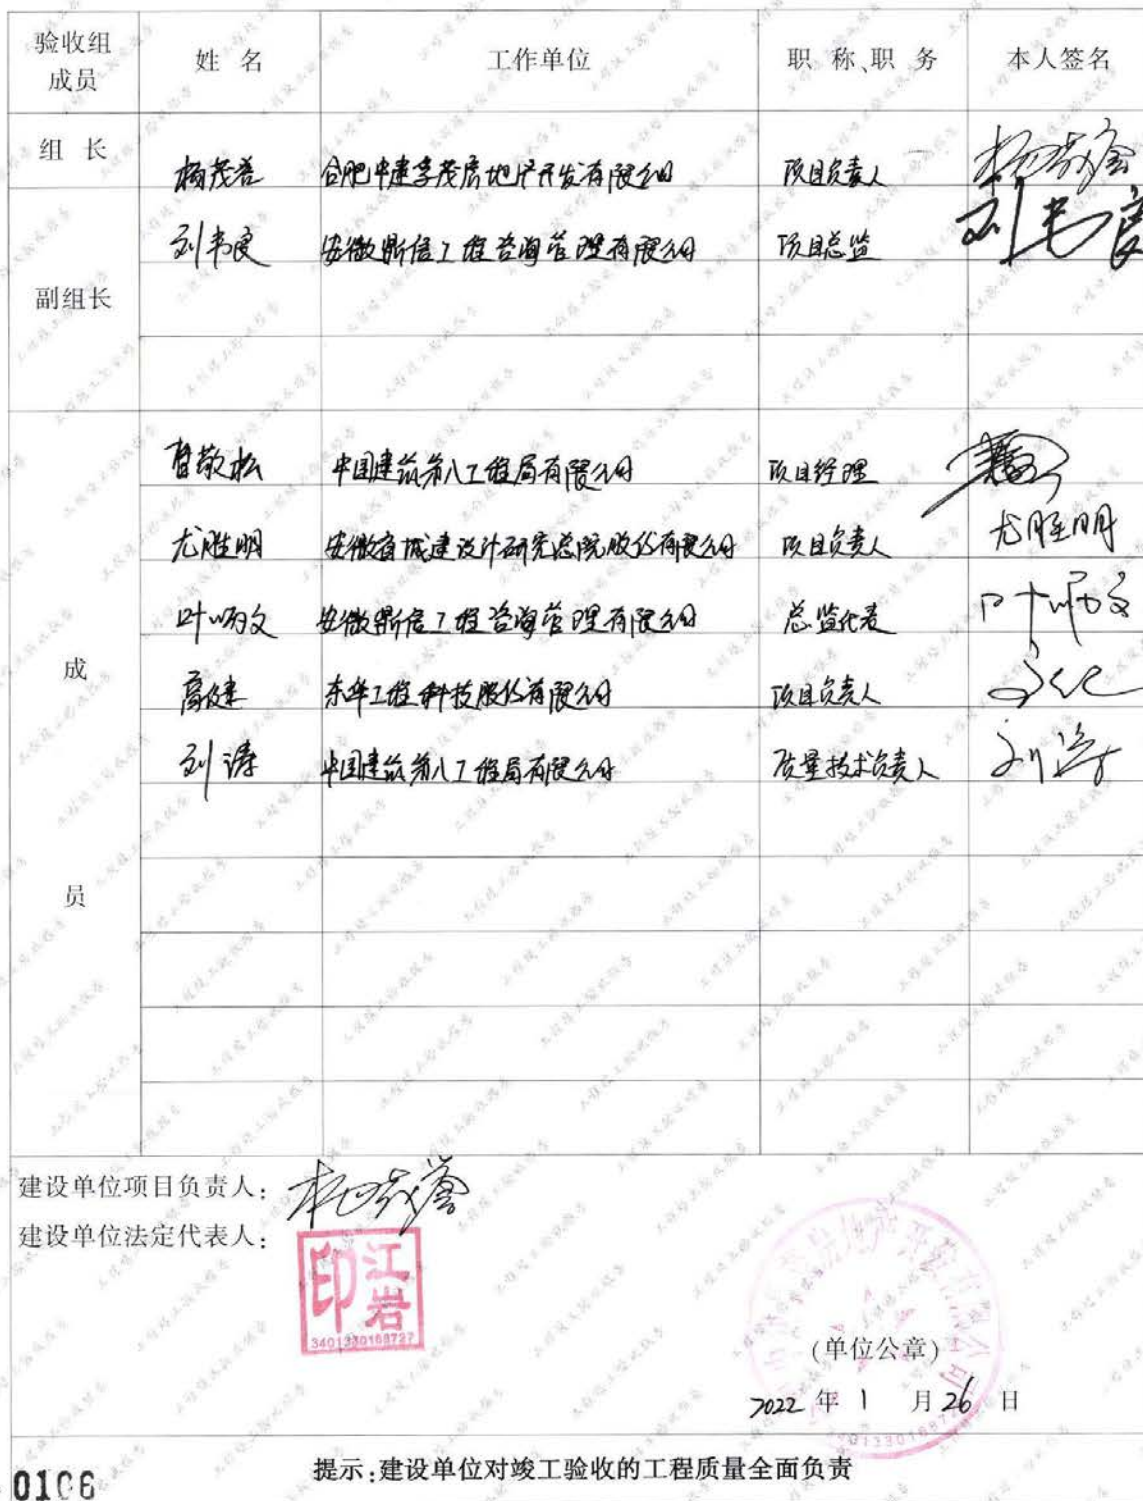 验收组成员 姓 名 工作单位 职 称、职 务 本人签名
组 长 杨茂誉 合肥中建孚茂房地产开发有限公司 项目负责人
副组长 刘韦良 安徽鼎信工程咨询管理有限公司 项目总监
成员
曹敬松 中国建筑第八工程局有限公司 项目经理
尤胜明 安徽省城建设计研究总院股份有限公司 项目负责人 尤胜明
叶炳文 安徽鼎信工程咨询管理有限公司 总监代表 叶炳文
高健 东华工程科技股份有限公司 项目负责人
刘涛 中国建筑第八工程局有限公司 质量技术负责人 刘涛
建设单位项目负责人:
建设单位法定代表人:
江岩印
3401330168727
(单位公章)
2022 年 1 月 26 日
提示:建设单位对竣工验收的工程质量全面负责
0106